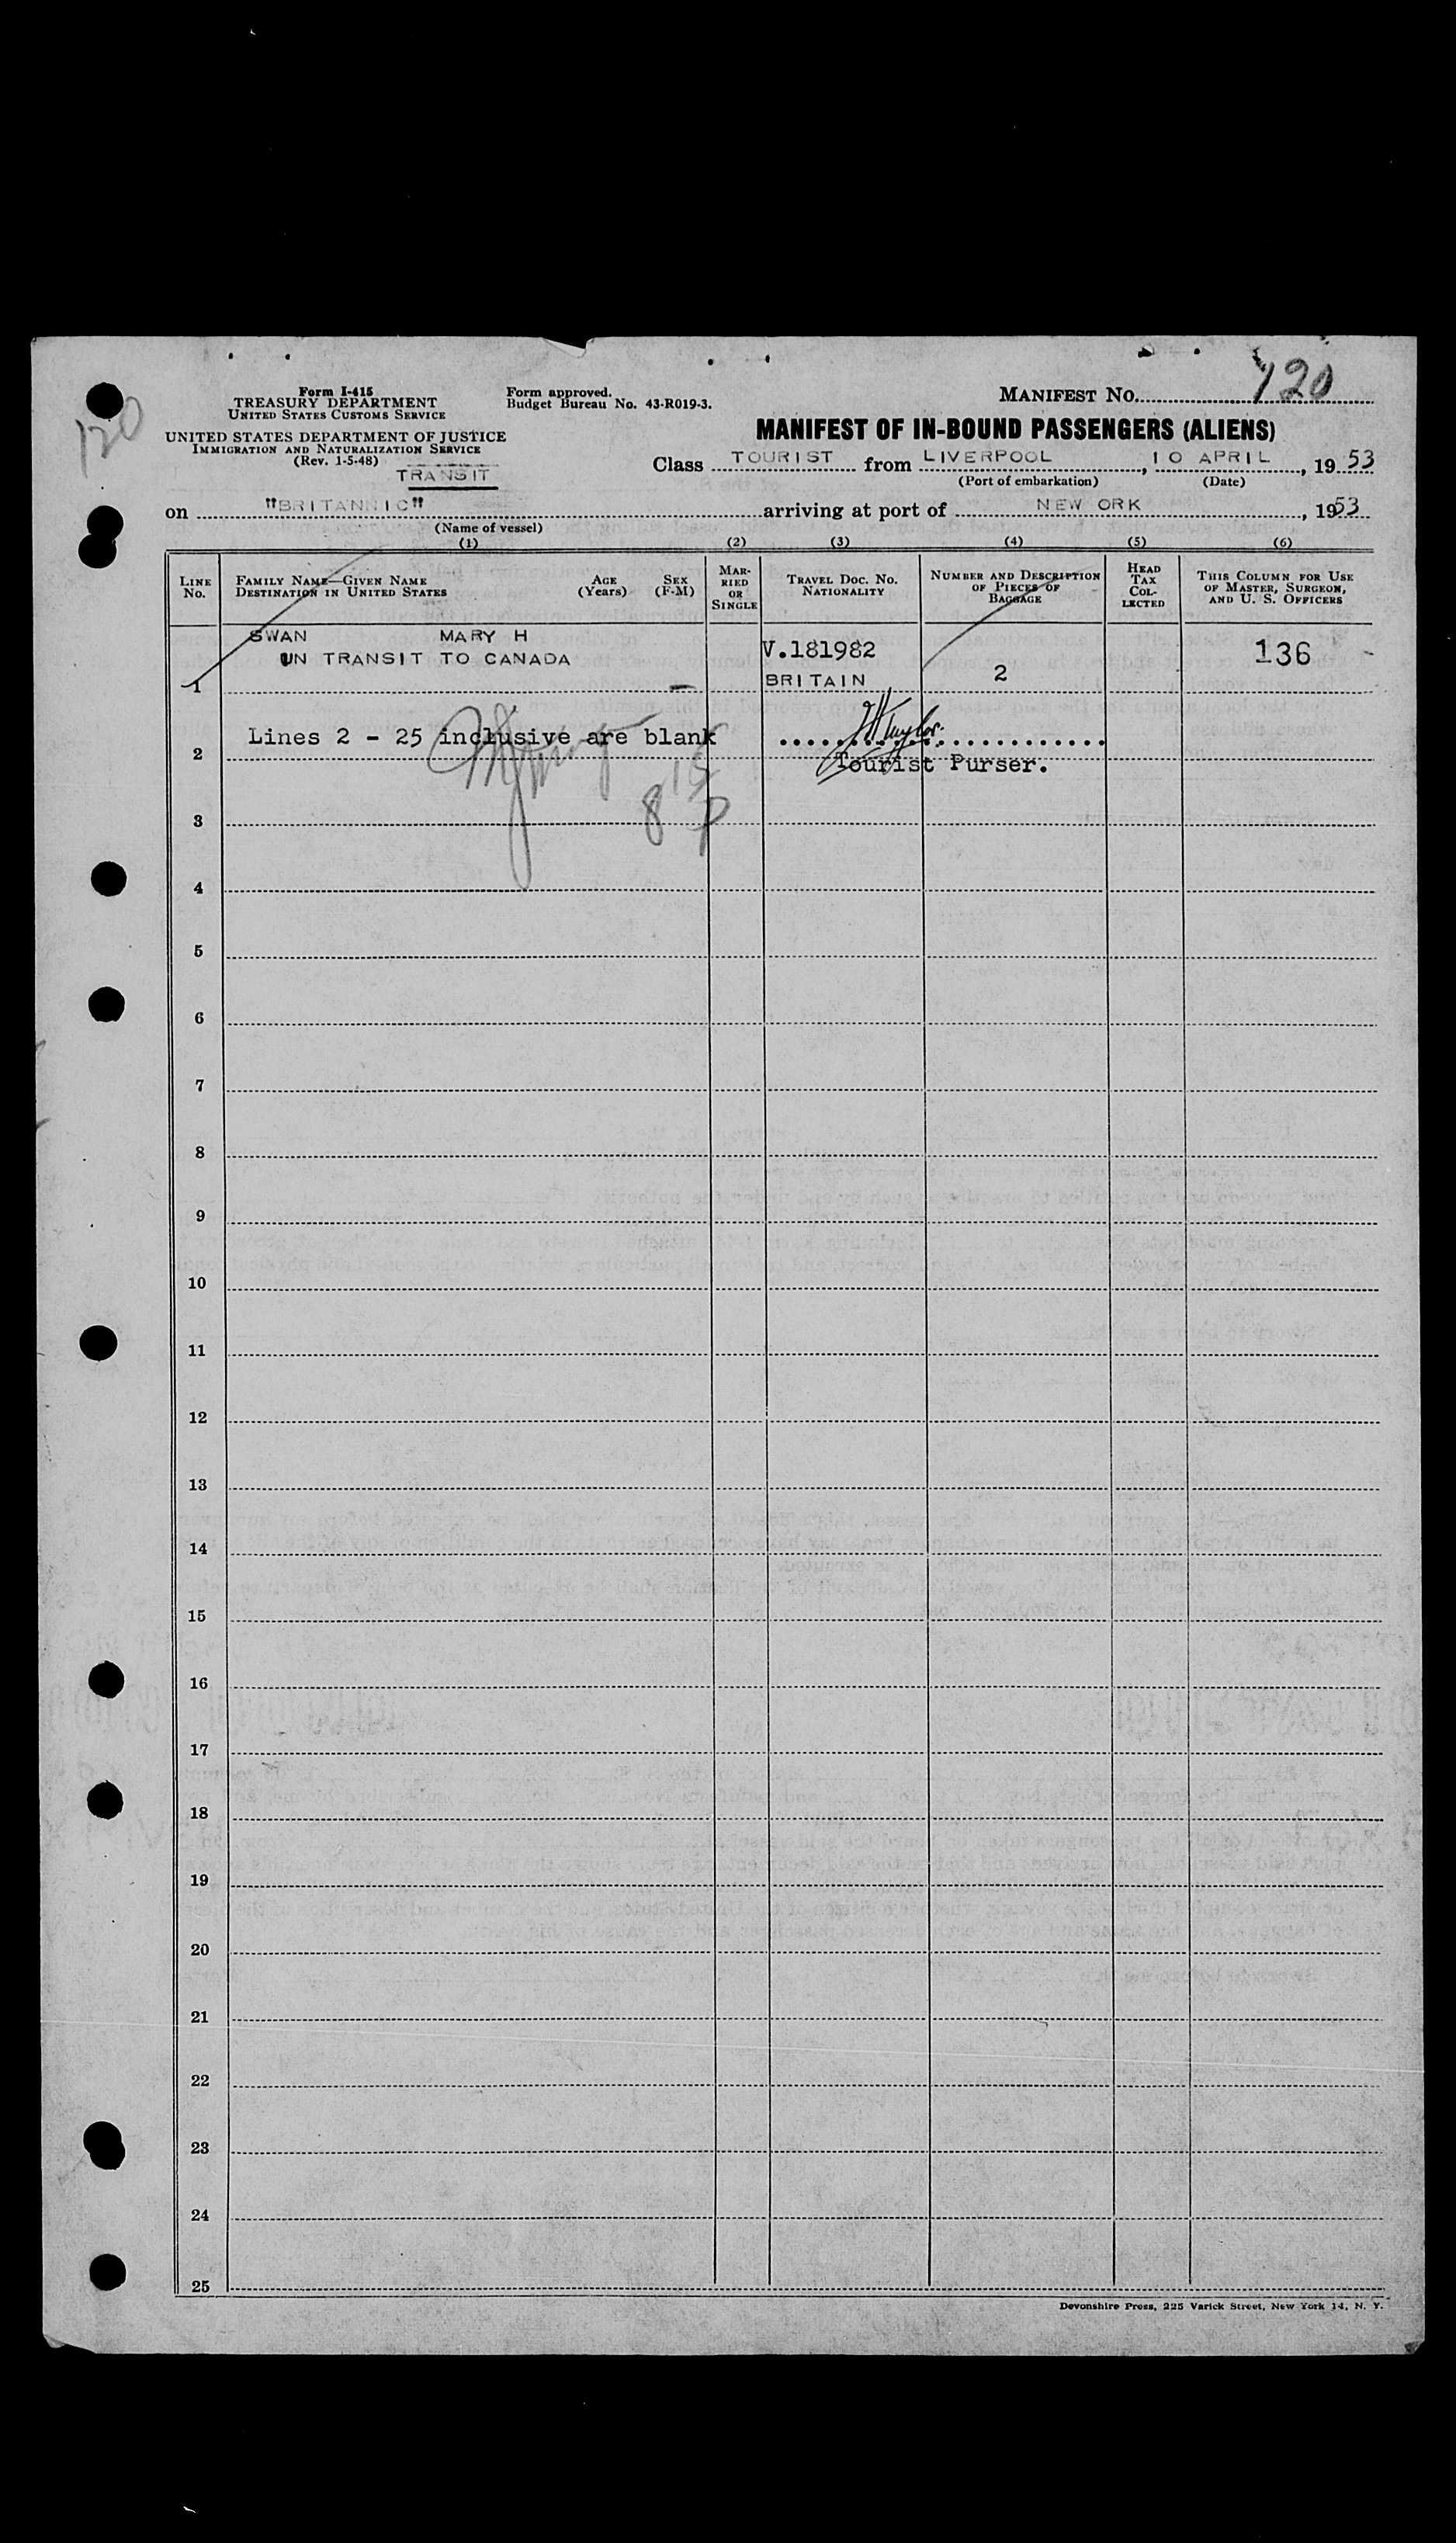 120
120
Form I-415
TREASURY DEPARTMENT
UNITED STATES CUSTOMS SERVICE
UNITED STATES DEPARTMENT OF JUSTICE
IMMIGRATION AND NATURALIZATION SERVICE
(Rev. 1-5-48)
TRANSIT
Form approved.
Budget Bureau No. 43-R019-3.
MANIFEST NO.
MANIFEST OF IN-BOUND PASSENGERS (ALIENS)
Class TOURIST from LIVERPOOL, 10 APRIL, 1953
(Port of embarkation) (Date)
on "BRITANNIC" arriving at port of NEW ORK, 1953
(Name of vessel)
(1) (2) (3) (4) (5) (6)
LINE NO.
FAMILY NAME—GIVEN NAME
DESTINATION IN UNITED STATES
AGE (Years)
SEX (F-M)
MARRIED OR SINGLE
TRAVEL DOC. NO. NATIONALITY
NUMBER AND DESCRIPTION OF PIECES OF BAGGAGE
HEAD TAX COLLECTED
THIS COLUMN FOR USE OF MASTER, SURGEON, AND U. S. OFFICERS
SWAN MARY H
UN TRANSIT TO CANADA
V.181982
BRITAIN
2
136
1
Lines 2 - 25 inclusive are blank
Taylor
Tourist Purser.
2
8
3
4
5
6
7
8
9
10
11
12
13
14
15
16
17
18
19
20
21
22
23
24
25
Devonshire Press, 225 Varick Street, New York 14, N. Y.